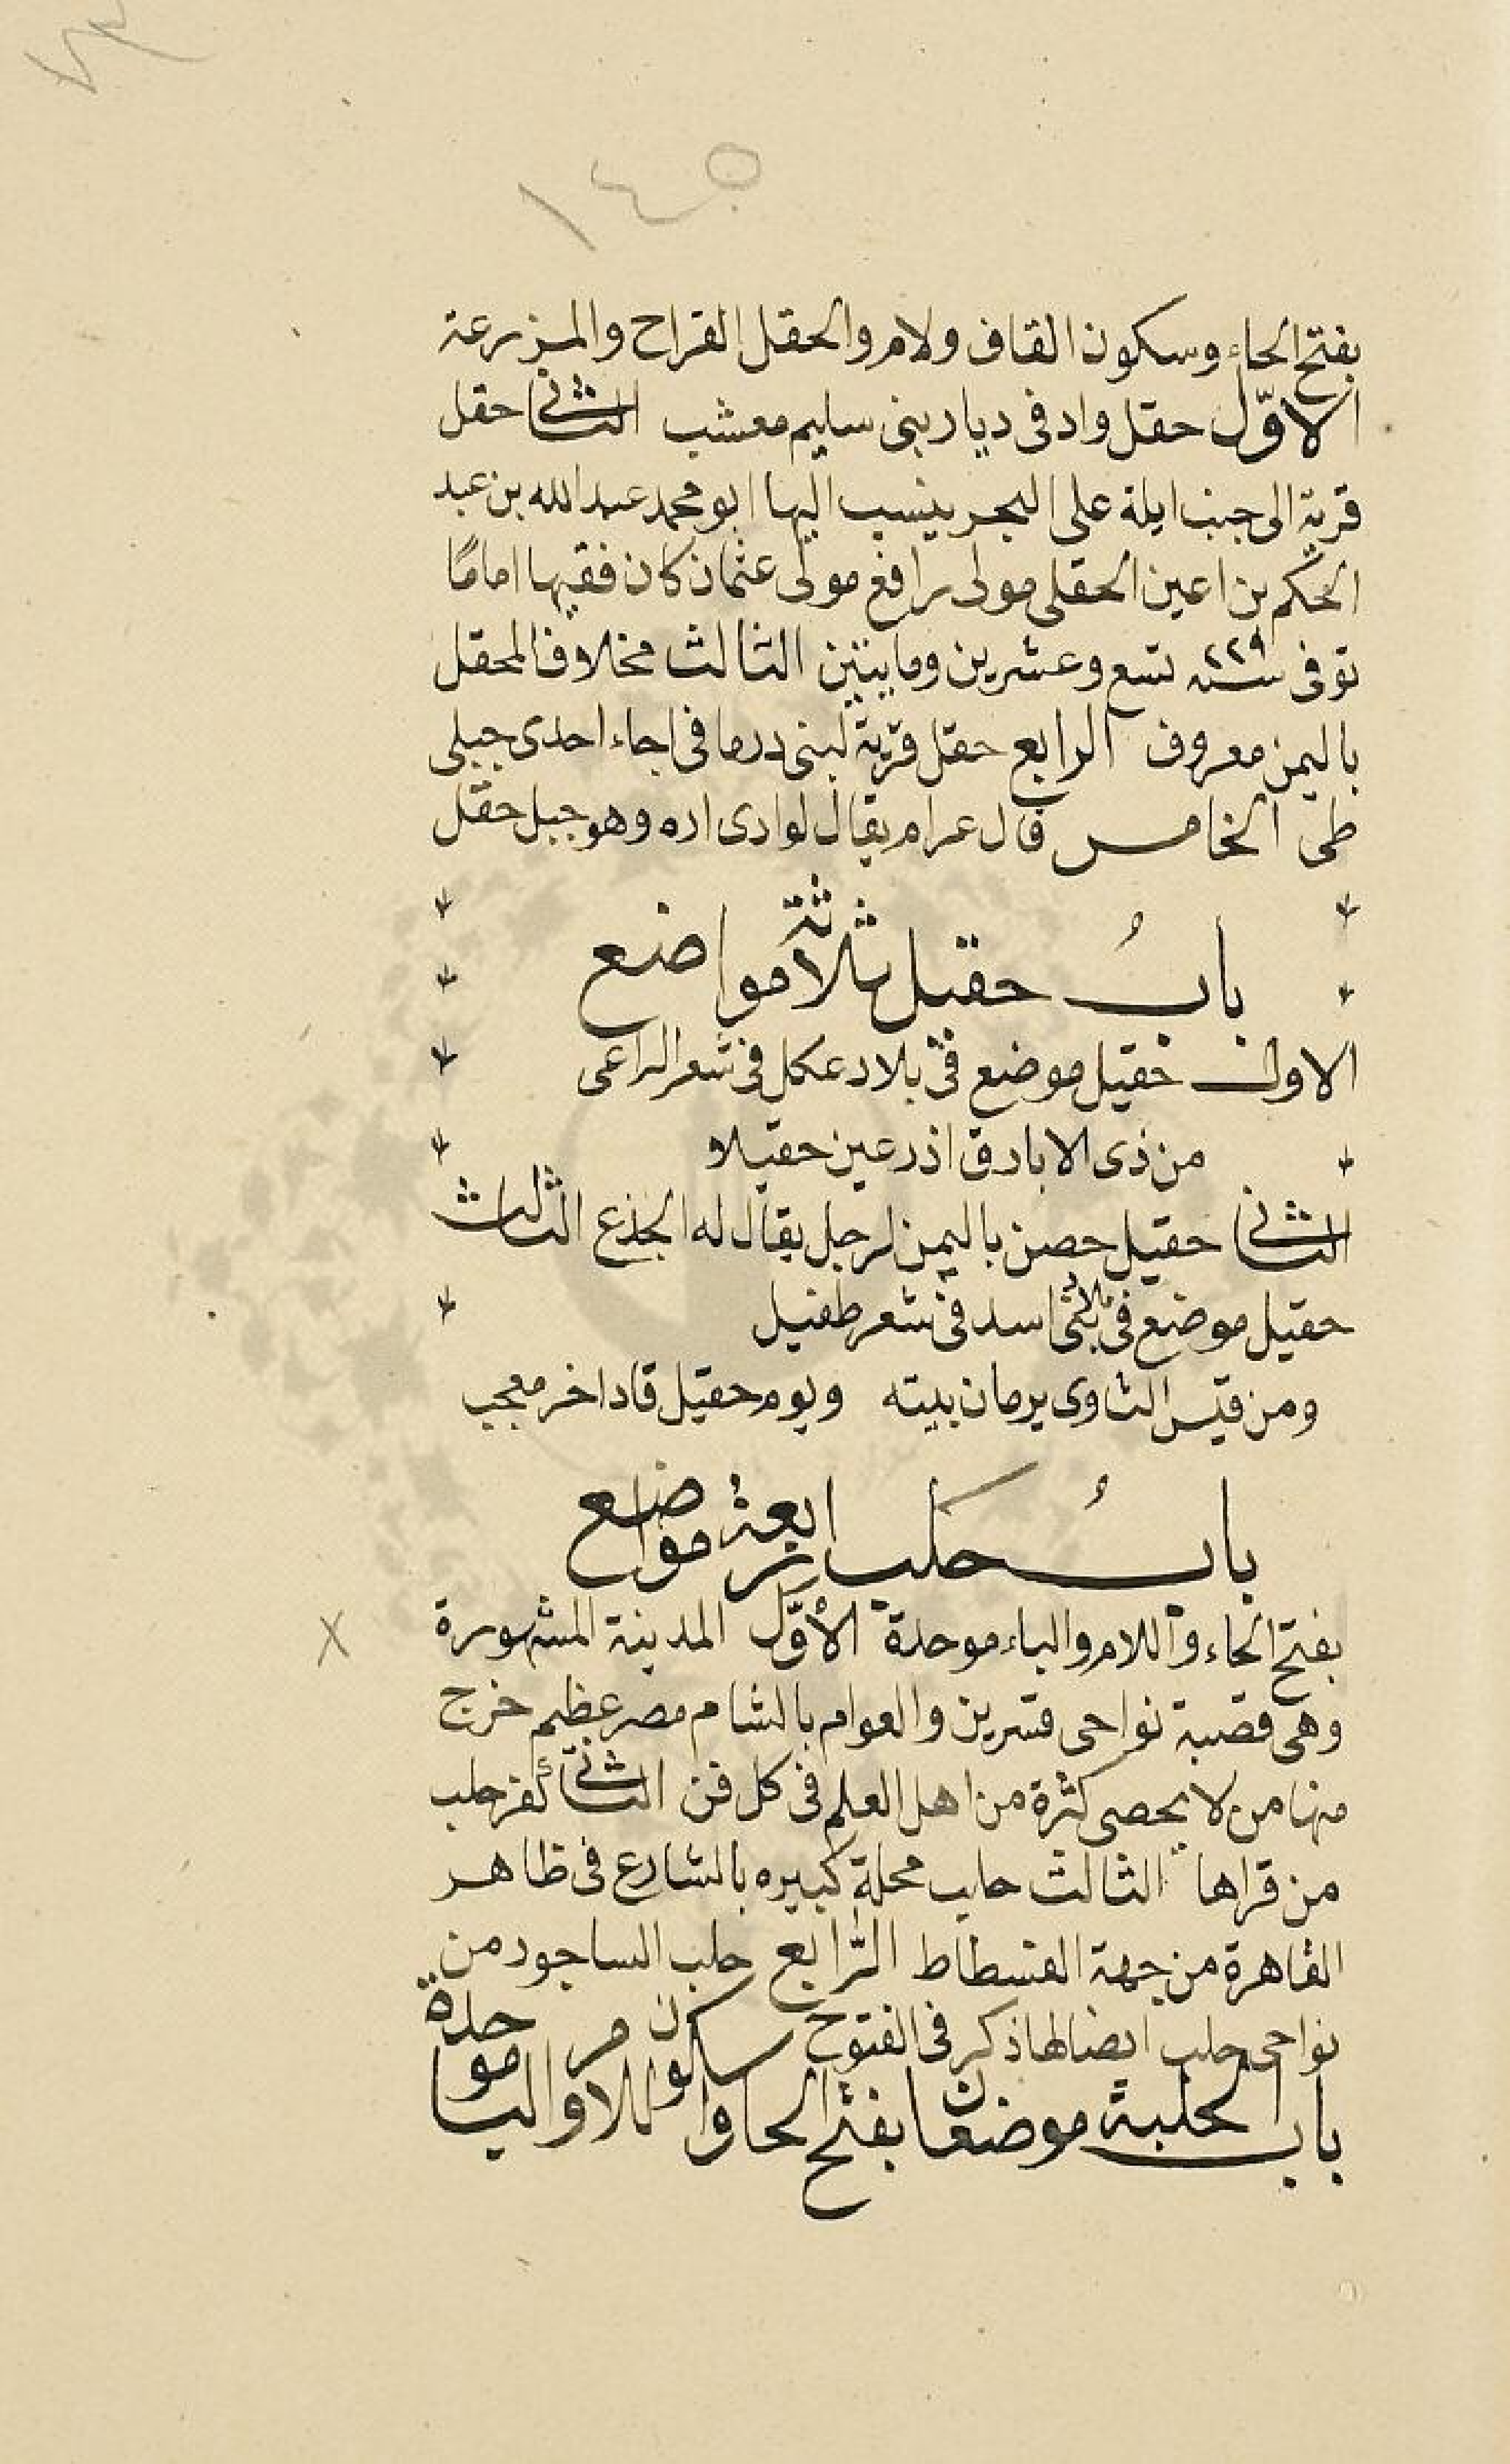 ١٤٥
بفتح الحاء وسكون القاف ولام والحقل القراح والمزرعة
الاوّل حقل واد فى ديار بنى سليم معشب الثانى حقل
قرية الى جنب ايلة على البحر ينسب اليها ابو محمد عبد الله بن عبد
الحكم بن اعين الحقلى مولى رافع مولى عثمان كان فقيها امامًا
توفى سنه ٢٢٩ تسع وعشرين ومايتين الثالث مخلاف المحقل
باليمن معروف الرابع حقل قرية لبنى درما فى اجاء احدى جبلى
طى الخامس قال عرام يقال لوادى اره وهو جبل حقل
بابُ حقيل ثلاثة مواضع
الاول حقيل موضع فى بلاد عكل فى شعر الراعى
من ذى الابارق اذ رعين حقيلا
الثانى حقيل حصن باليمن لرجل يقال له الجذع الثالث
حقيل موضع فى بلاد بنى اسد فى شعر طفيل
ومن قيس الثاوى برمان بيته ويوم حقيل قاد اخر معجب
بابُ حلب اربعة مواضع
بفتح الحاء واللام والباء موحدة الأوّل المدينة المشهورة
وهى قصبة نواحى قنسرين والعوام بالشام مصر عظيم خرج
منها من لا يحصى كثرة من اهل العلم فى كل فن الثانى كفر حلب
من قراها الثالث حلب محلة كبيره بالشارع فى ظاهر
القاهرة من جهة الفسطاط الرّابع حلب الساجور من
نواحى حلب ايضا لها ذكر فى الفتوح
باب الحلبة موضعان بفتح الحا وسكون اللام والبا موحدة